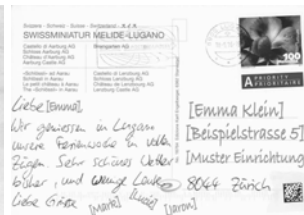 Suisse - Schweiz - Suisse - Switzerland
SWISSMINIATUR MELIDE-LUGANO
Castello di Aarburg AG
Schloss Aarburg AG
Château d'Aarburg AG
Aarburg Castle AG
Bremgarten AG
«Schlössli» at Aarau
«Schlössli» in Aarau
Le petit château à Aarau
The «Schlössli» in Aarau
Castello di Lenzburg AG
Schloss Lenzburg AG
Château de Lenzbourg AG
Lenzburg Castle AG
Liebe [Emma],
Wir geniessen in Lugano
unsere Ferienwoche in vollen
Zügen. Sehr schönes Wetter
bisher, und wenige Leute.
Liebe Grüsse
[Mark] [Lucia] [Jaron]
100
A PRIORITY
PRIORITAIRE
[Emma Klein]
[Beispielstrasse 5]
[Muster Einrichtung]
8044 Zürich